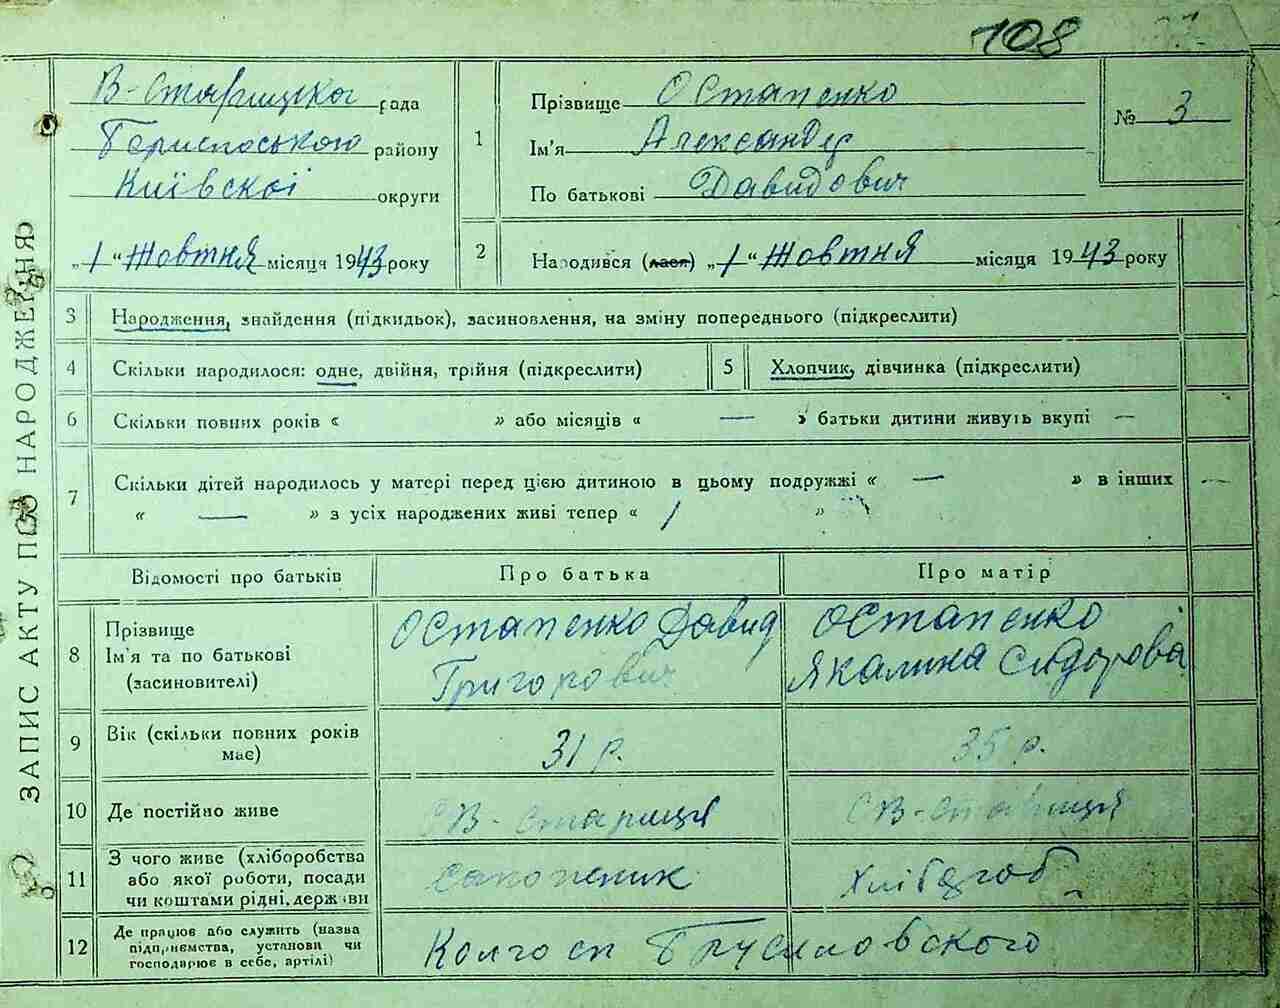 108
В-Старицка рада
Бориспоського району
Київскої округи
„1“ Жовтня місяця 1943 року
1
Прізвище Остапенко
Ім'я Александер
По батькові Давидович
№ 3
2
Народився (лася) „1“ Жовтня місяця 1943 року
ЗАПИС АКТУ ПРО НАРОДЖЕННЯ
3 Народження, знайдення (підкидьок), засиновлення, на зміну попереднього (підкреслити)
4 Скільки народилося: одне, двійня, трійня (підкреслити)
5 Хлопчик, дівчинка (підкреслити)
6 Скільки повних років « » або місяців « — » батьки дитини живуть вкупі —
7 Скільки дітей народилось у матері перед цією дитиною в цьому подружжі « — » в інших —
« — » з усіх народжених живі тепер « 1 »
Відомості про батьків
Про батька
Про матір
8 Прізвище
Ім'я та по батькові
(засиновителі)
Остапенко Давид
Григорович
Остапенко
Якалина Сидорова
9 Вік (скільки повних років
має)
31 р.
35 р.
10 Де постійно живе
СВ-Стариця
СВ-Стариця
11 З чого живе (хліборобства
або якої роботи, посади
чи коштами рідні, держави
сапожник
Хлібороб
12 Де працює або служить (назва
підприємства, установи чи
господарює в себе, артілі)
Колгосп